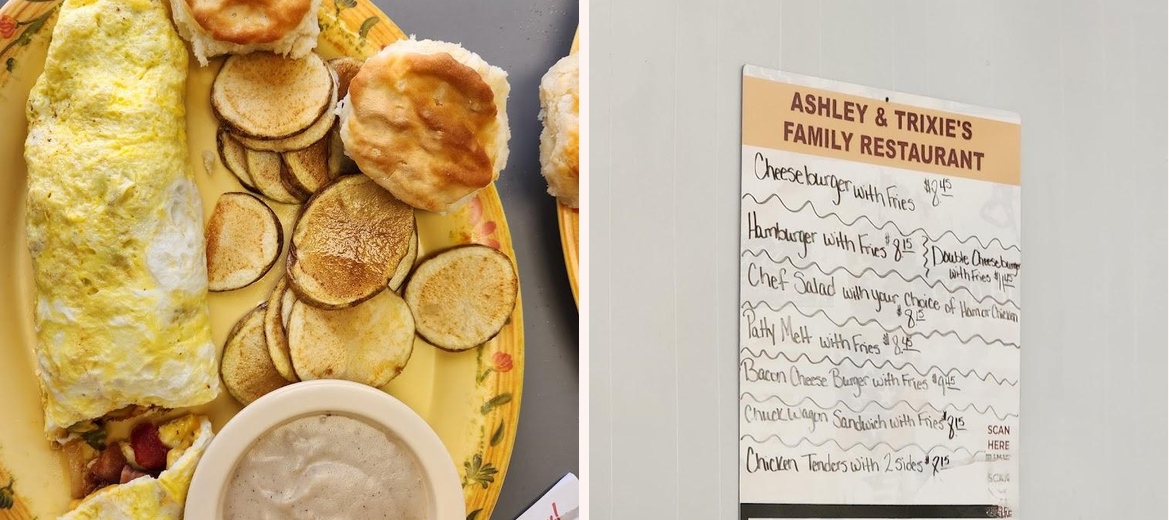 ASHLEY & TRIXIE'S
FAMILY RESTAURANT
Cheeseburger with Fries $8.45
Hamburger with Fries $8.15
Double Cheeseburger
with Fries $11.45
Chef Salad with your Choice of Ham or Chicken
$8.15
Patty Melt with Fries $8.45
Bacon Cheese Burger with Fries $9.45
Chuck Wagon Sandwich with Fries $8.15
Chicken Tenders with 2 Sides
SCAN
HERE
SCAN